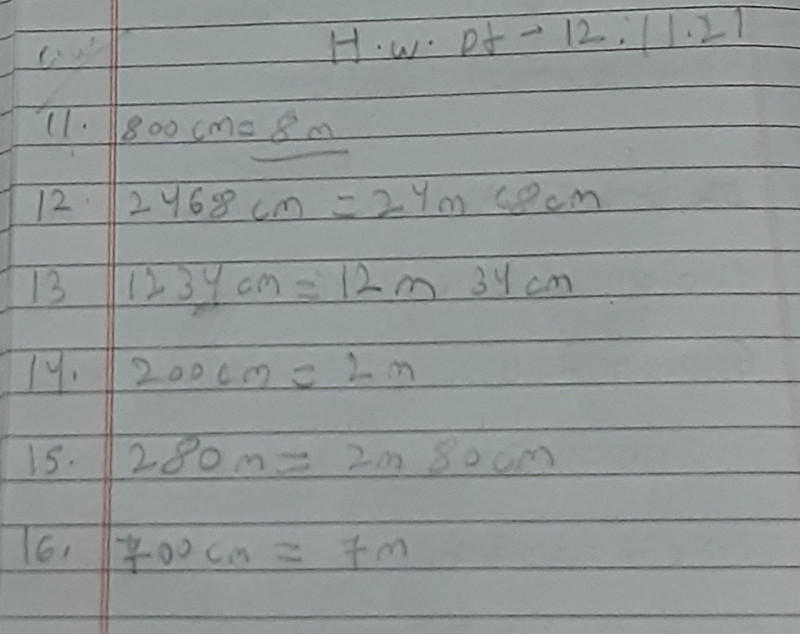 H.w. Dt - 12.11.21
11. 800 cm = 8 m
12. 2468 cm = 24 m 68 cm
13 1234 cm = 12 m 34 cm
14. 200 cm = 2 m
15. 280 m = 2m 80 cm
16. 700 cm = 7 m